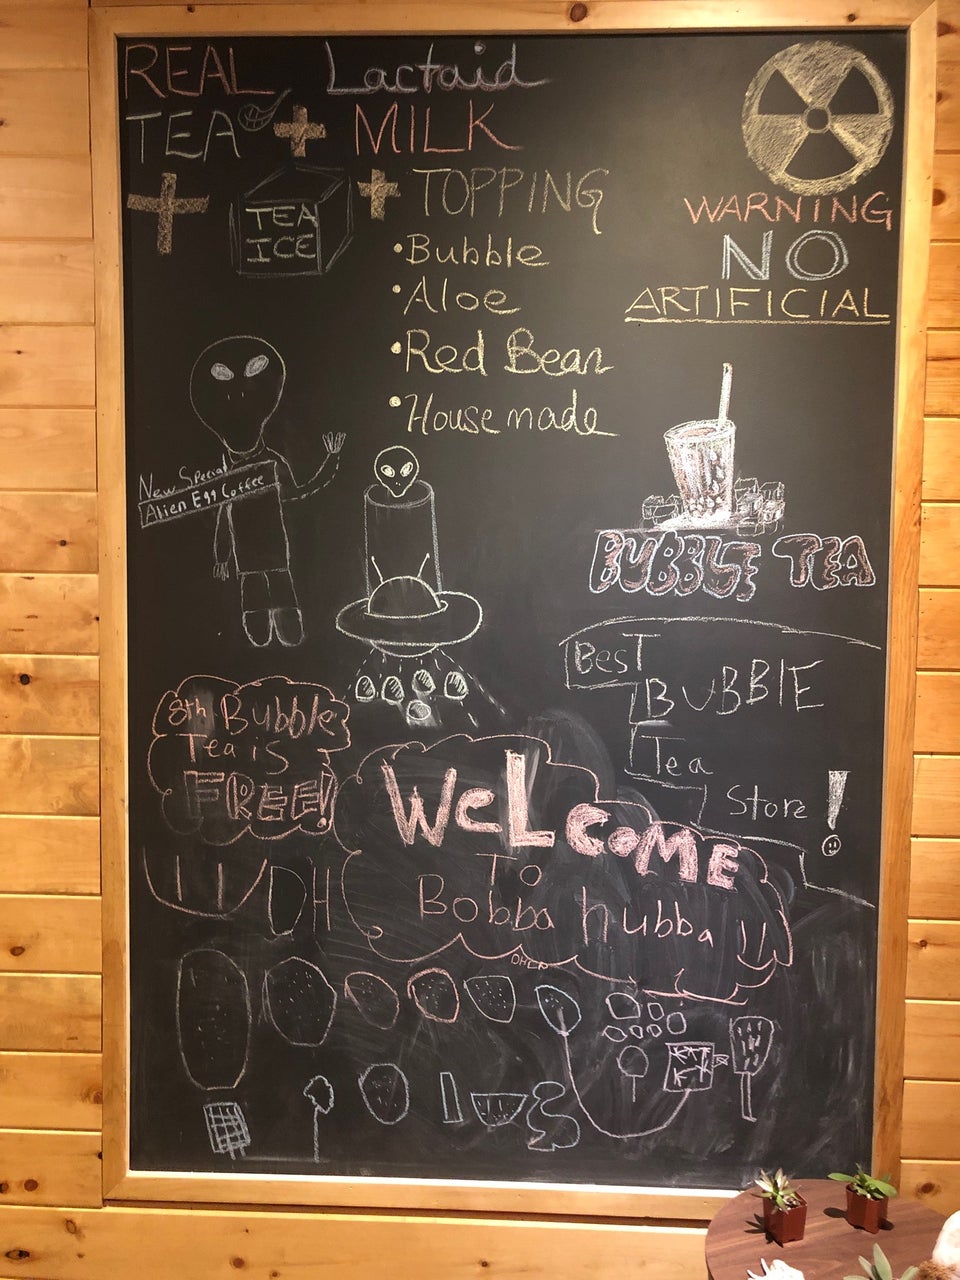 REAL Lactaid
TEA + MILK
+ TEA ICE + TOPPING
•Bubble
•Aloe
•Red Bean
•Housemade
WARNING
NO
ARTIFICIAL
New Special
Alien Egg Coffee
BUBBLE TEA
BesT
BUBBlE
Tea
Store!
8th Bubble
Tea is
FREE!
WeLcoME
To
Bobba hubba
DH